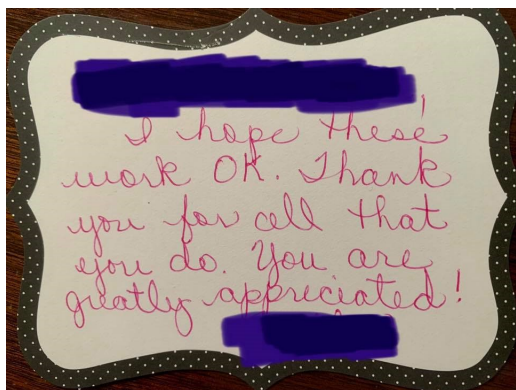 I hope these
work OK. Thank
you for all that
you do. You are
greatly appreciated!